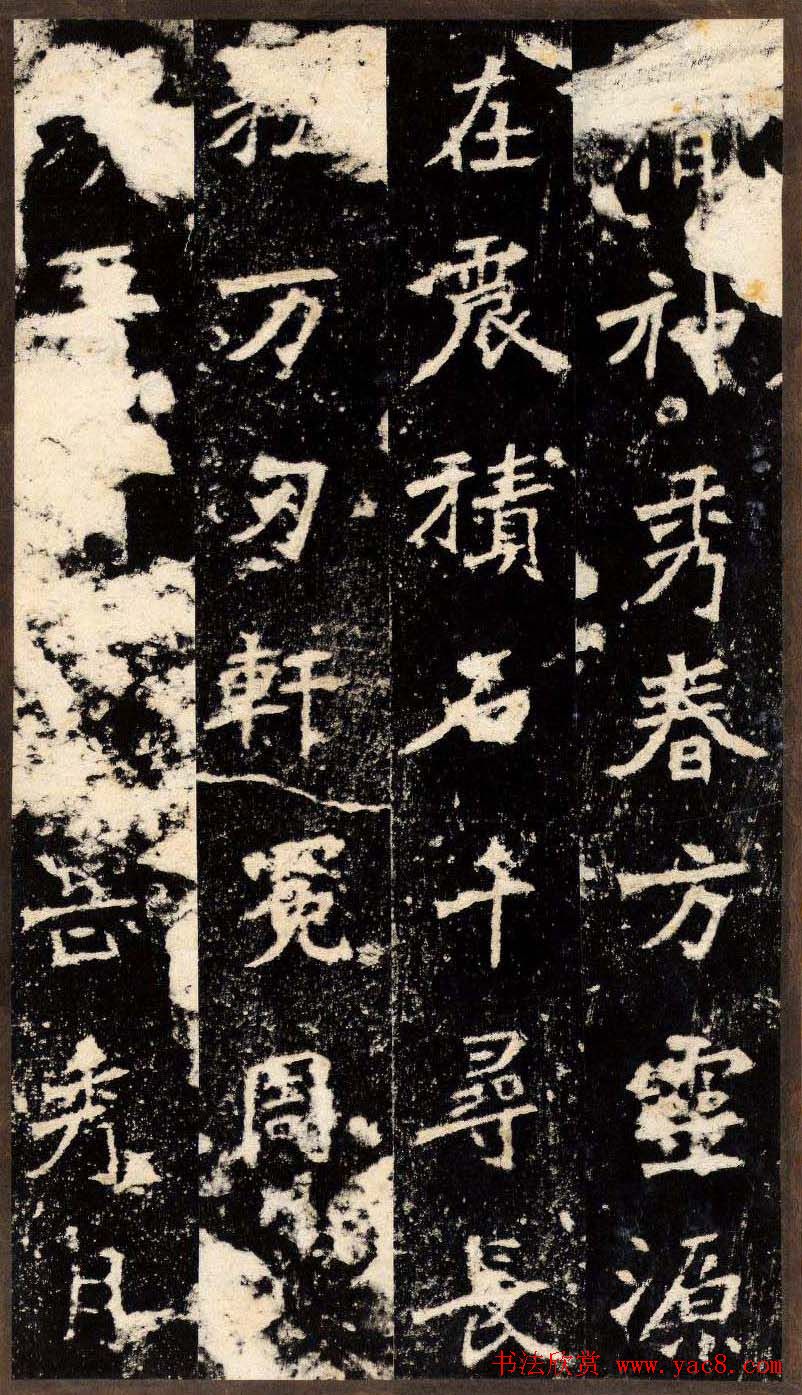 神秀春方靈源
在震積石千尋長
松万刃軒冕周
岳秀月
书法欣赏 www.yac8.com